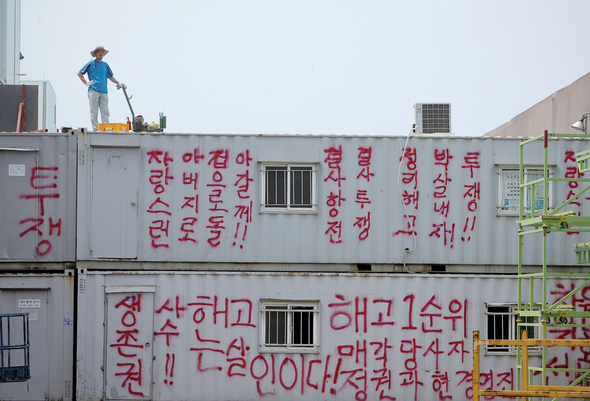 투쟁
자랑스런
아버지로
집으로돌
아갈께!!
결사항전
결사투쟁
정리해고
박살내자!
투쟁!!
생존권
사수!!
해고
는살인이다!
해고1순위
매각당사자
정권과현경영진